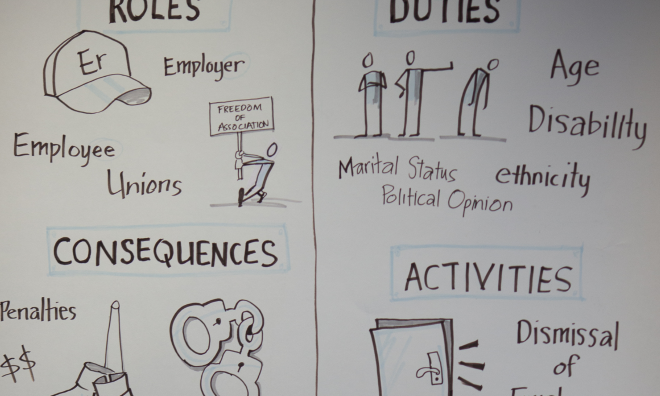 ROLES
Er
Employer
FREEDOM
OF
ASSOCIATION
Employee
Unions
DUTIES
Age
Disability
Marital Status
ethnicity
Political Opinion
CONSEQUENCES
Penalties
$$
ACTIVITIES
Dismissal
of